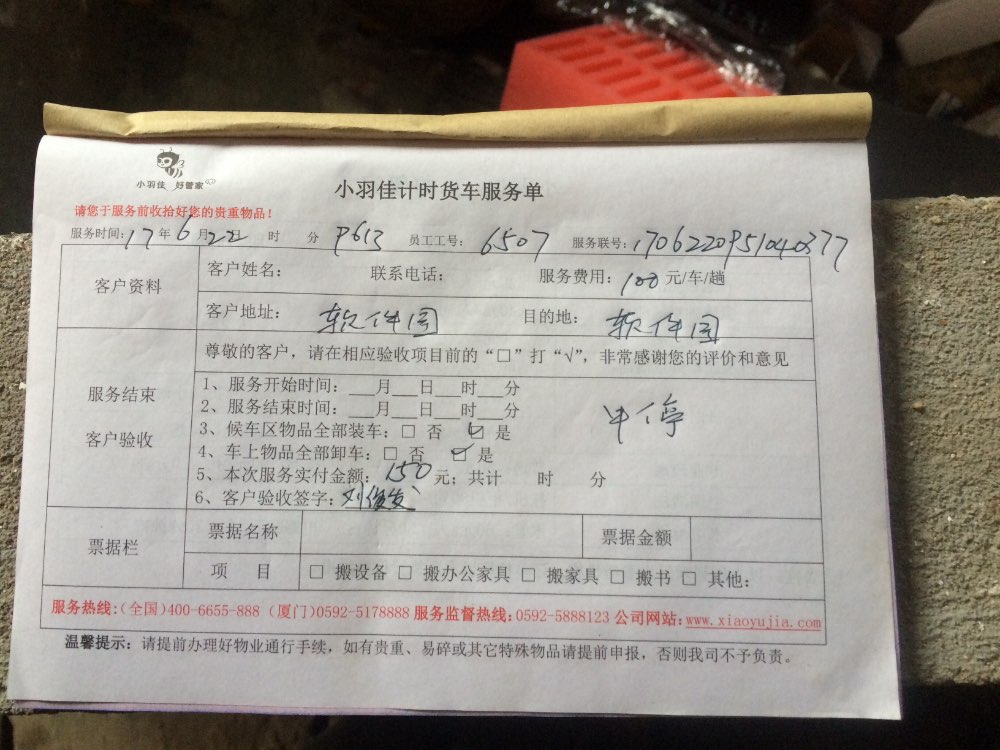 小羽佳 好管家
小羽佳计时货车服务单
请您于服务前收拾好您的贵重物品！
服务时间：17年6月22日 时 分 P613 员工工号：6507 服务联号：1706220951040377
客户资料
客户姓名： 联系电话： 服务费用：100元/车/趟
客户地址：软件园 目的地：软件园
服务结束
客户验收
尊敬的客户，请在相应验收项目前的“□”打“√”，非常感谢您的评价和意见
1、服务开始时间：___月___日___时___分
2、服务结束时间：___月___日___时___分
中停
3、候车区物品全部装车：□ 否 ☑ 是
4、车上物品全部卸车：□ 否 ☑ 是
5、本次服务实付金额：150元；共计 时 分
6、客户验收签字：刘俊发
票据栏
票据名称 票据金额
项 目 □ 搬设备 □ 搬办公家具 □ 搬家具 □ 搬书 □ 其他：
服务热线：（全国）400-6655-888（厦门）0592-5178888 服务监督热线：0592-5888123 公司网站：www.xiaoyujia.com
温馨提示：请提前办理好物业通行手续，如有贵重、易碎或其它特殊物品请提前申报，否则我司不予负责。